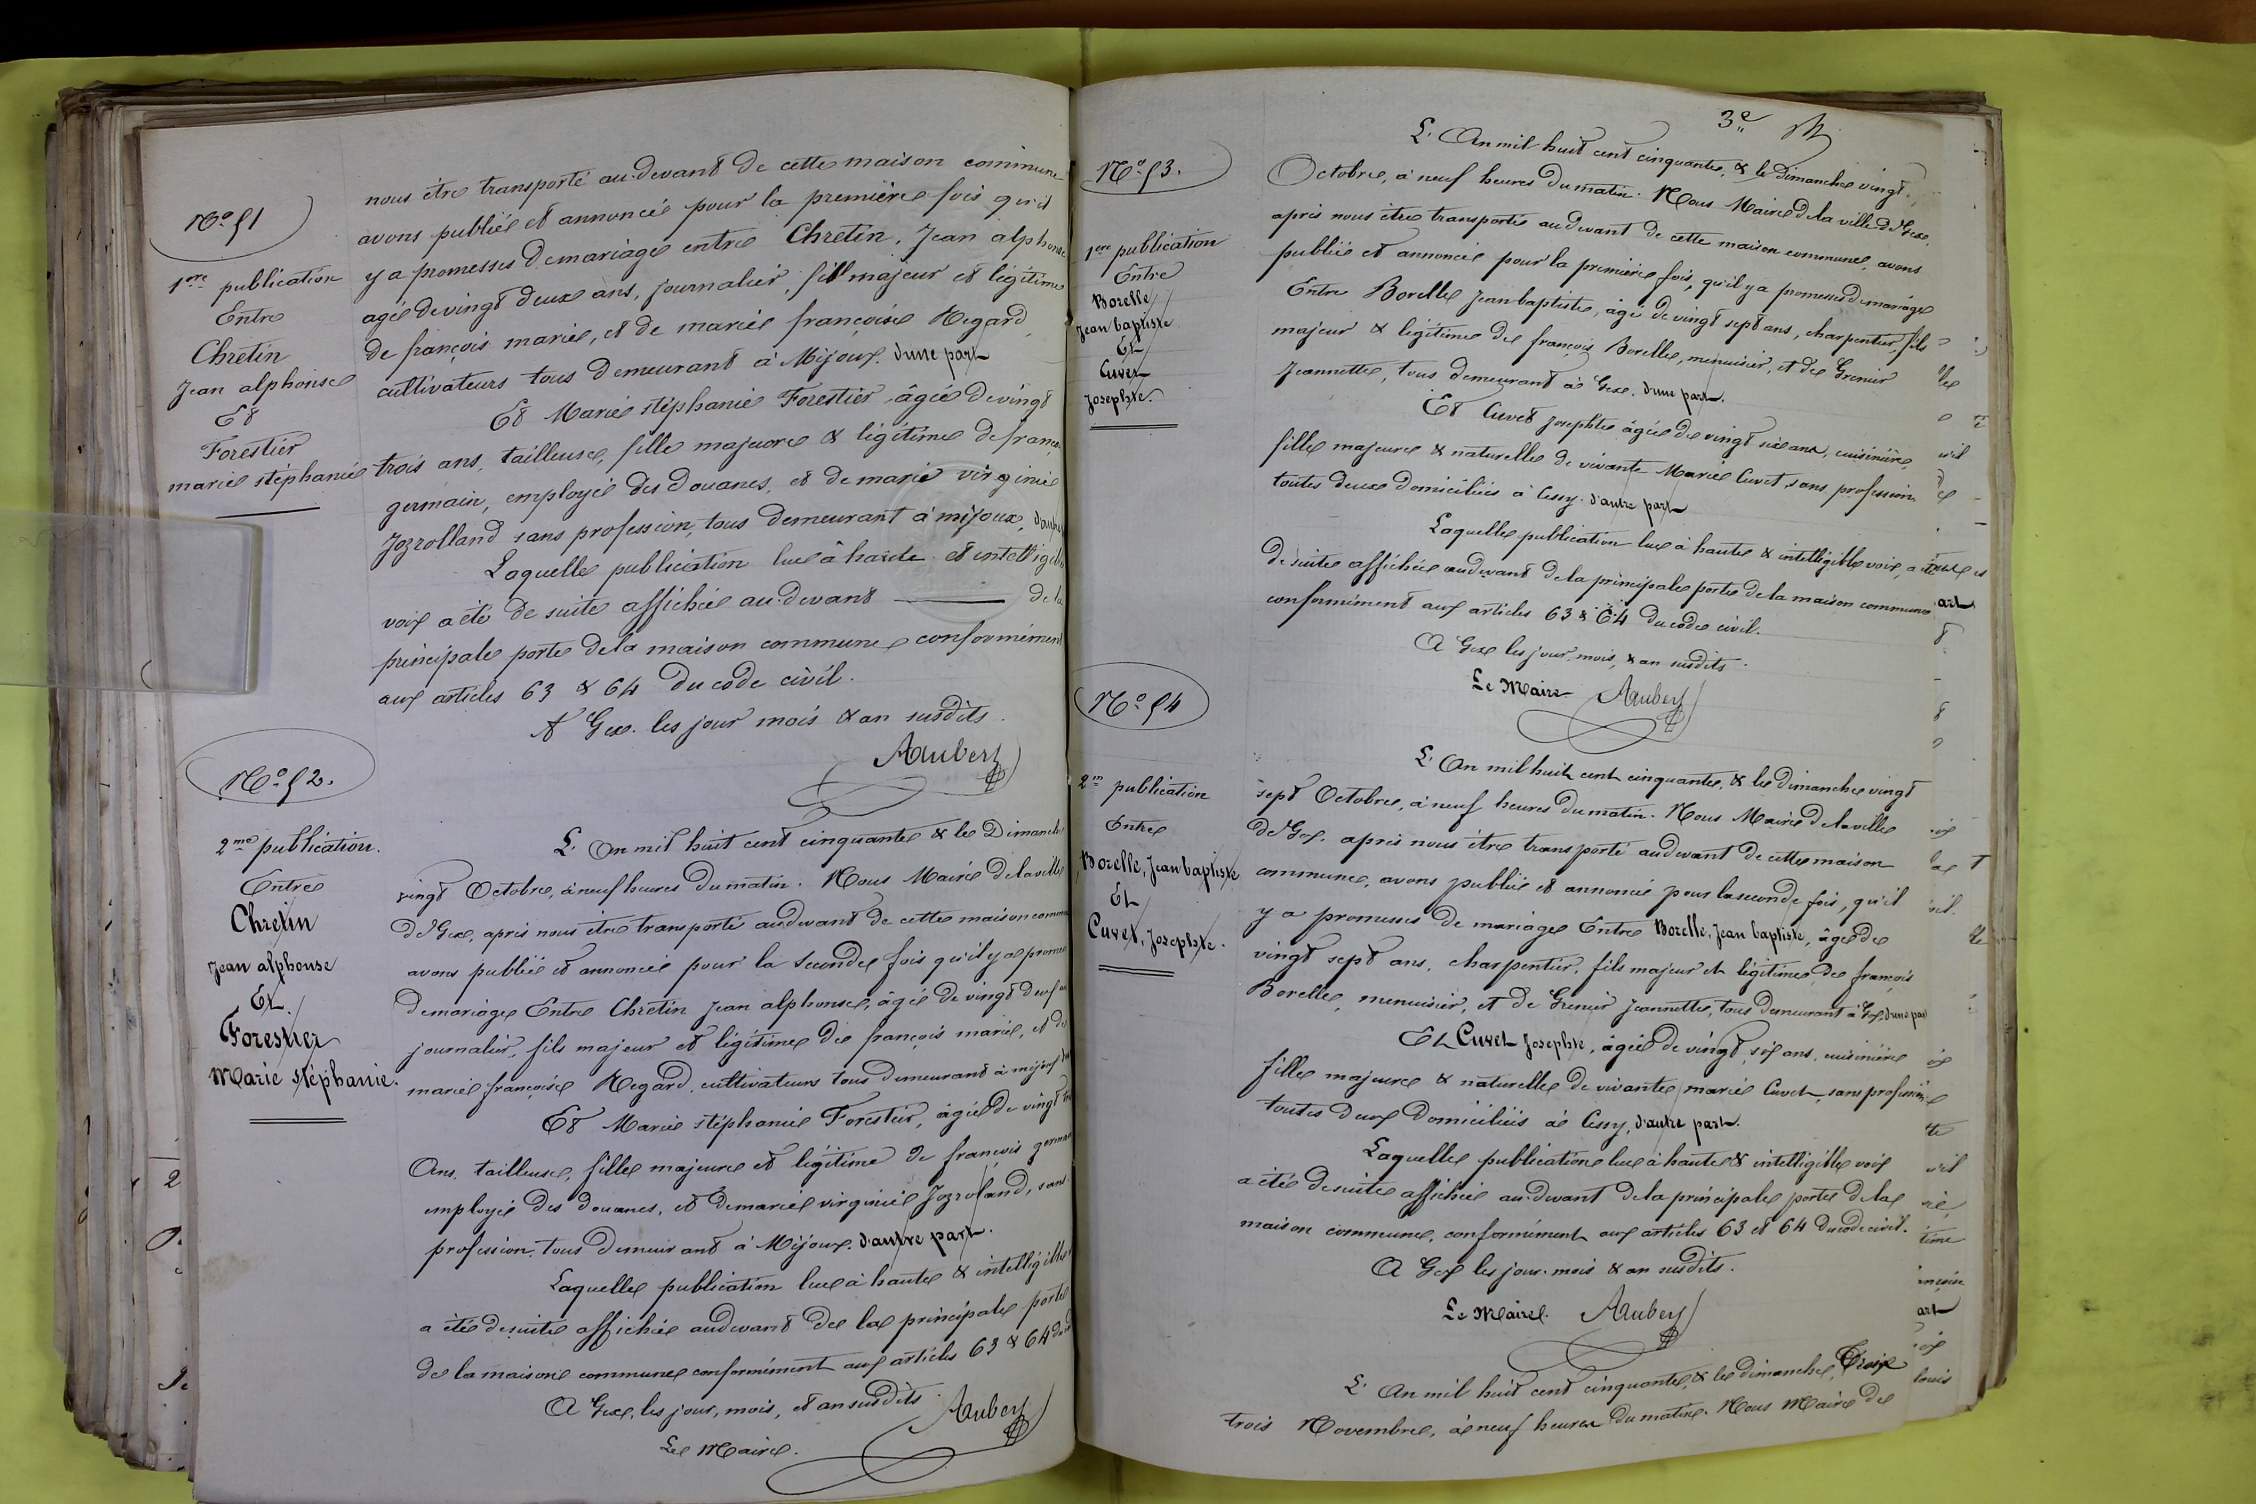 nous être transporté au devant de cette maison commune
avons publié et annoncé pour la première fois qu'il
y a promesses de mariage entre Chretin, Jean alphonse
agé de vingt deux ans, journalier, fils majeur et légitime
de françois marie, et de marie françoise Regard
cultivateurs tous demeurant à Mijoux. d'une part
Et Marie stéphanie Forestier, âgée de vingt
trois ans, tailleuse, fille majeure & légitime de françois
germain, employé des Douanes, et de marie virginie
Jozrolland sans profession, tous demeurant à mijoux, d'autre
Laquelle publication lue à haute et intelligible
voix a été de suite affichée au devant de la
principale porte de la maison commune conformément
aux articles 63 & 64 du code civil.
A Gex. les jour mois & an susdits.
Aubery
No. 51
1ere publication
Entre
Chretin
Jean alphonse
Et
Forestier
marie stéphanie
No. 52.
2me publication.
Entre
Chretin
Jean alphonse
Et
Forestier
Marie stéphanie.
L'An mil huit cent cinquante & le Dimanche
vingt Octobre, à neuf heures du matin. Nous Maire de la ville
de Gex, après nous être transporté au devant de cette maison commune
avons publié et annoncé pour la seconde fois qu'il y a promesse
de mariage Entre Chretin Jean alphonse, âgé de vingt deux ans
journalier, fils majeur et légitime de françois marie, et de
marie françoise Regard, cultivateurs tous demeurant à mijoux
Et Marie stéphanie Forestier, âgée de vingt trois
Ans, tailleuse, fille majeure et légitime de françois germain
employé des douanes, et de marie virginie Jozroland, sans
profession, tous demeurant à Mijoux. d'autre part.
Laquelle publication lue à haute & intelligible
a été de suite affichée au devant de la principale porte
de la maison commune conformément aux articles 63 & 64 du
A Gex, les jour, mois, et an susdits.
Aubery
Le Maire.
3e
No. 53.
1ere publication
Entre
Borelle
Jean baptiste
Et
Cuvet
Josephte.
L'An mil huit cent cinquante, & le Dimanche vingt
Octobre, à neuf heures du matin. Nous Maire de la ville de Gex
après nous être transporté au devant de cette maison commune, avons
publié et annoncé pour la première fois, qu'il y a promesses de mariage
Entre Borelle Jean baptiste, âgé de vingt sept ans, charpentier, fils
majeur & légitime de françois Borelle, menuisier, et de Grenier
Jeannette, tous demeurant à Gex. d'une part.
Et Cuvet Josephte âgée de vingt six ans, cuisinière,
fille majeure & naturelle de vivante Marie Cuvet, sans profession
toutes deux domiciliées à Cessy. d'autre part
Laquelle publication lue à haute & intelligible voix, a été
de suite affichée au devant de la principale porte de la maison commune
conformément aux articles 63 & 64 du code civil.
A Gex les jour, mois, & an susdits.
Le Maire Aubery
No. 54
2e publication
Entre
Borelle, Jean baptiste
Et
Cuvet, Josephte.
L'An mil huit cent cinquante, & le Dimanche vingt
sept Octobre, à neuf heures du matin. Nous Maire de la ville
de Gex. après nous être transporté au devant de cette maison
commune, avons publié et annoncé pour la seconde fois, qu'il
y a promesses de mariage Entre Borelle, Jean baptiste, âgé de
vingt sept ans, charpentier, fils majeur et légitime de françois
Borelle, menuisier, et de Grenier Jeannette, tous demeurant à Gex, d'une part
Et Cuvet Josephte, âgée de vingt six ans, cuisinière
fille majeure & naturelle de vivante marie Cuvet, sans profession
toutes deux domiciliées à Cessy, d'autre part.
Laquelle publication lue à haute & intelligible voix
a été de suite affichée au devant de la principale porte de la
maison commune, conformément aux articles 63 et 64 du code civil.
A Gex les jour, mois & an susdits.
Le Maire. Aubery
L'An mil huit cent cinquante, & le dimanche, Trois
trois Novembre, à neuf heures du matin. Nous Maire de